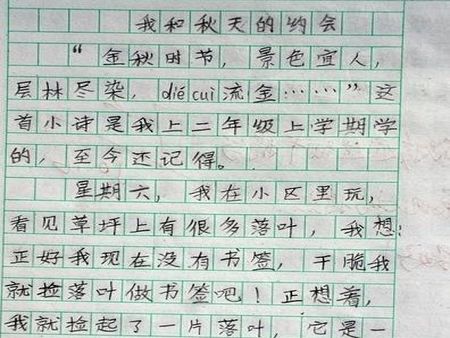 我和秋天的约会
“金秋时节，景色宜人，
层林尽染，dié cuì流金……”这
首小诗是我上二年级上学期学
的，至今还记得。
星期六，我在小区里玩，
看见草坪上有很多落叶，我想：
正好我现在没有书签，干脆我
就捡落叶做书签吧！正想着，
我就捡起了一片落叶，它是一